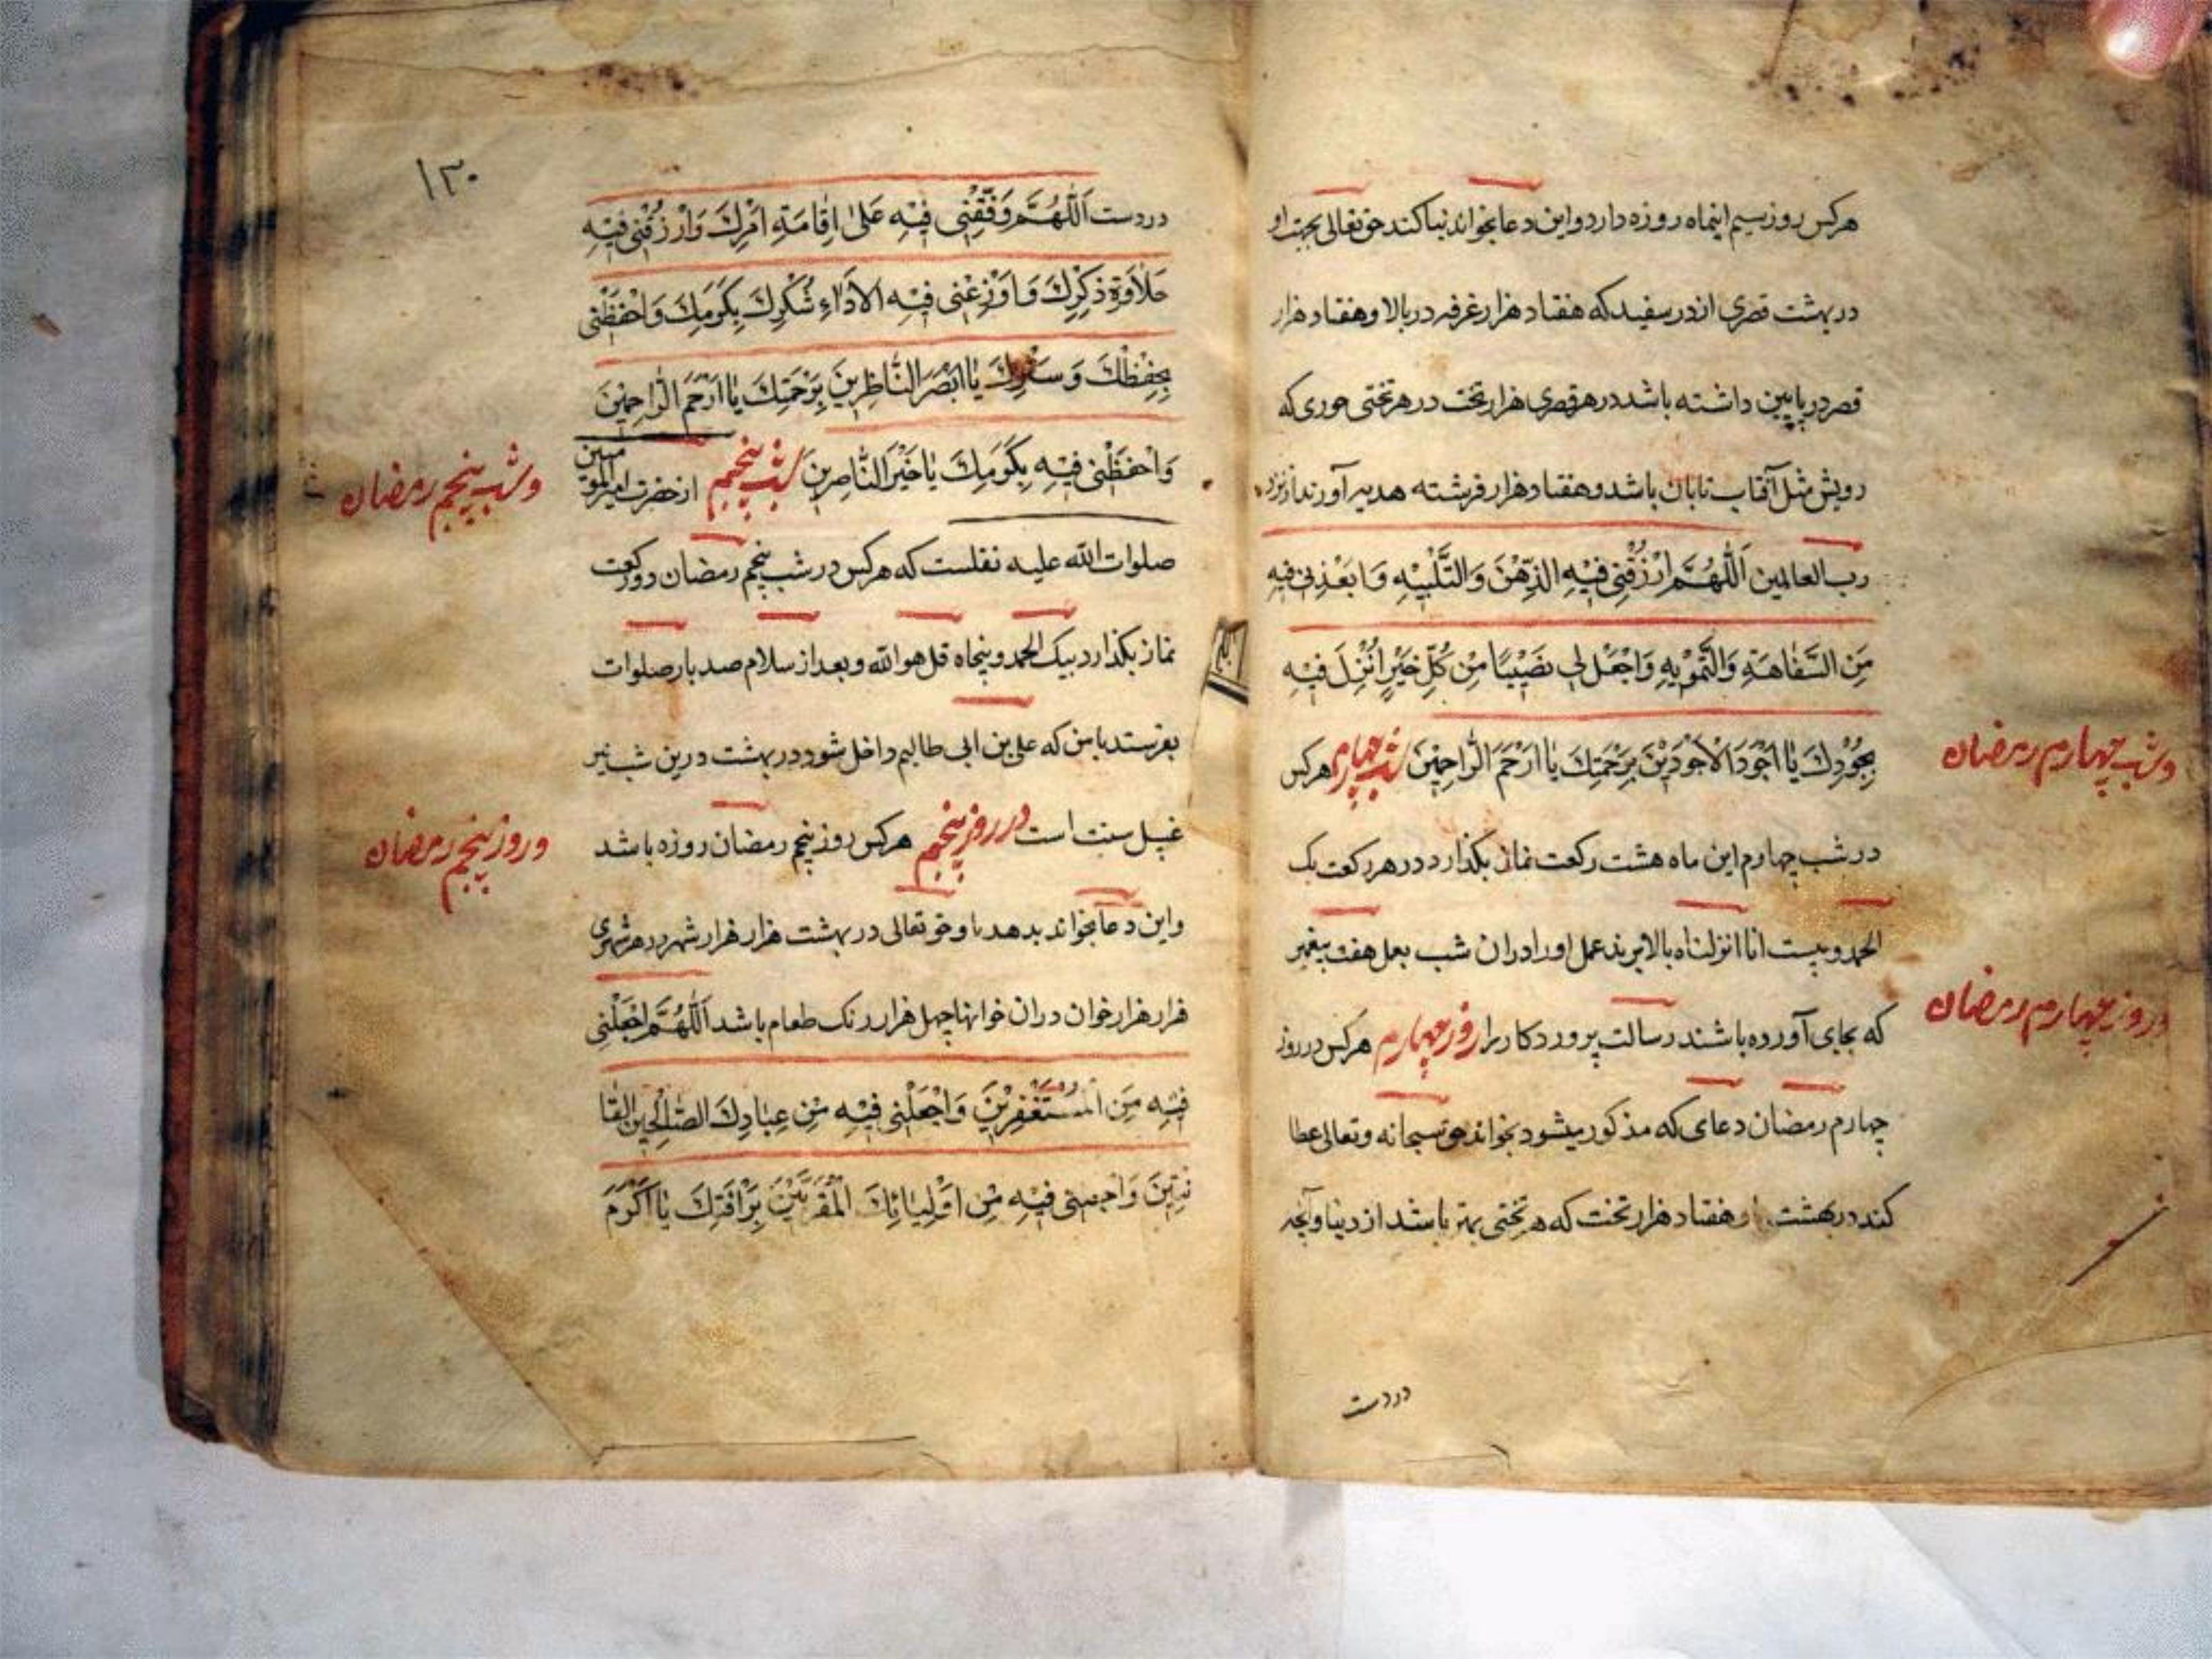 هرکس روز سیم اینماه روزه دارد و این دعا بخواند بنا کند حق تعالی بجهت او
در بهشت قصری از در سفید که هفتاد هزار غرفه در بالا و هفتاد هزار
قصر در پایین داشته باشد در هر قصری هزار تخت در هر تختی حوری که
رویش مثل آفتاب تابان باشد و هفتاد هزار فرشته هدیه آورند از نزد
رب العالمین اَللّٰهُمَّ ارْزُقْنِی فِیْهِ الذِّهْنَ وَالتَّنْبِیْهِ وَ ابَعْدِنی فیهِ
مِنَ السَّفٰاهَةِ وَالتَّمْوْیهِ وَاجْعَل لی نَصَیْبًا مِنْ کُلِّ خَیْرٍ اُنْزِلَ فیْهِ
بِجُوْدِكَ یٰا اَجْوَدَ الْاَجْوَدیْنَ بِرَحْمَتِكَ یٰا اَرْحَمَ الرّٰاحِمیْنَ شب چهارم هرکس
وشب چهارم رمضان
در شب چهارم این ماه هشت رکعت نماز بگذارد در هر رکعت یک
الحمد و بیست انا انزلناه بالا برند عمل او را در ان شب بعمل هفت پیغمبر
که بجای آورده باشند رسالت پروردکار را روز چهارم هرکس در روز
دروز چهارم رمضان
چهارم رمضان دعای که مذکور میشود بخواند حق سبحانه و تعالی عطا
کند در بهشت هفتاد هزار تخت که هر تختی بهتر باشد از دنیا و آنچه
در دست
۱۳۰
در دست اَللّٰهُمَّ وَفِّقْنِی فیْهِ عَلیٰ اِقٰامَةِ اَمْرِكَ وَارْزُقْنی فیْهِ
حَلٰاوَةِ ذِکْرِكَ وَ اَوْزِعْنی فیْهِ الاَدٰاءِ شُکْرِكَ بِکَرَمِكَ وَاحْفَظْنی
بِحِفْظِكَ وَ سَتْرِكَ یٰا اَبْصَرَ النّٰاظِرینَ بِرَحْمَتِكَ یٰا اَرْحَمَ الرّٰاحِمیْنَ
وَاحْفَظْنی فیْهِ بِکَرَمِكَ یٰا خَیْرَ النّٰاصِرینَ شب پنجم از حضرت امیر المومنین
وشب پنجم رمضان
صلوات الله علیه نقلست که هرکس در شب پنجم رمضان دو رکعت
نماز بکذارد بیک الحمد و پنجاه قل هو الله و بعد از سلام صد بار صلوات
بفرستد با من که علی بن ابی طالبم داخل شود در بهشت درین شب نیز
غسل سنت است در روز پنجم هرکس روز پنجم رمضان روزه باشد
وروز پنجم رمضان
واین دعا بخواند بدهد باو حق تعالی در بهشت هزار هزار شهر در هر شهری
هزار هزار خوان در ان خوانها چهل هزار رنک طعام باشد اَللّٰهُمَّ اجْعَلْنی
فیْهِ مِنَ الْمُسْتَغْفِرِیْنَ وَاجْعَلْنی فیْهِ مْن عِبٰادِكَ الصّٰالِحیْن القٰا
نِتیْنَ وَاجعلنی فیْهِ مْن اَوْلِیٰائِكَ الْمُقَرَّبیْنَ بِرَاْفَتِكَ یٰا اَکْرَمَ